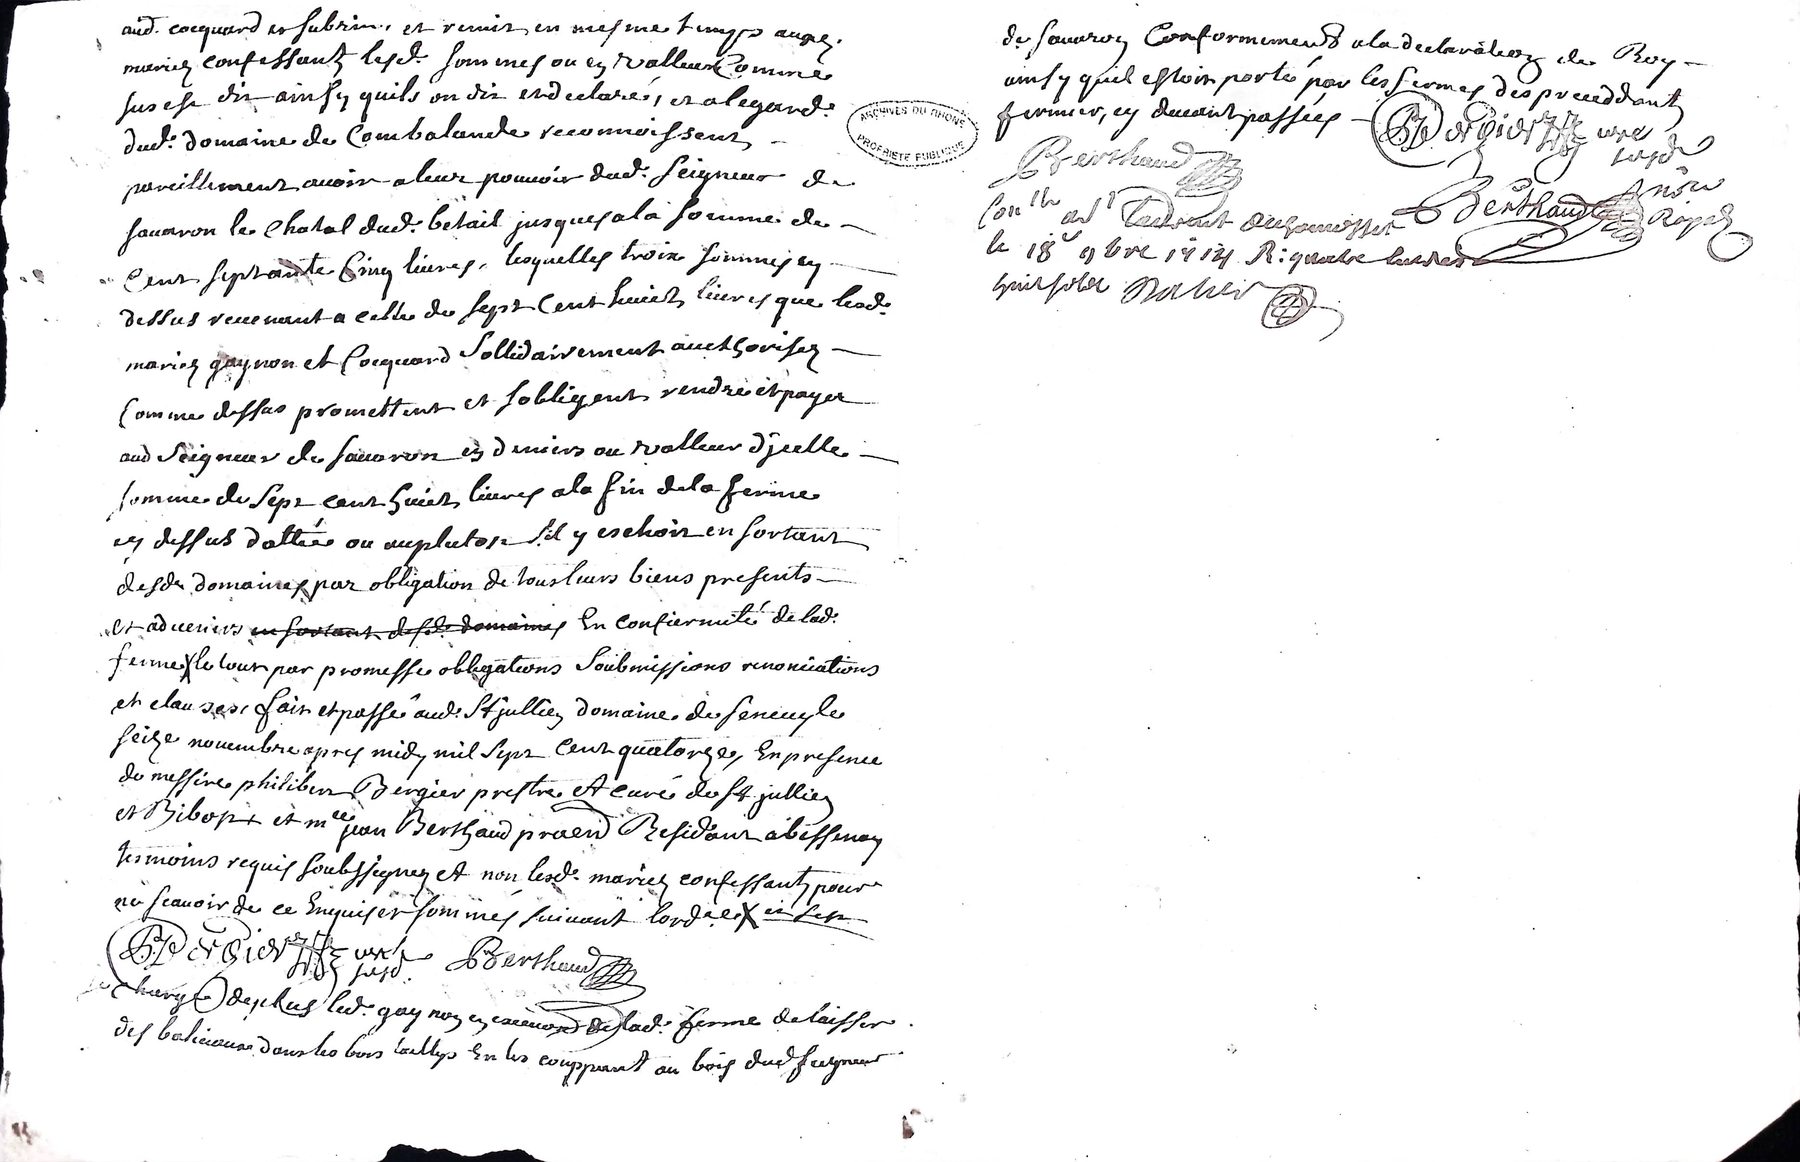 aud. cocquard et subrin, et remit en mesme temps ausd.
mariez confessantz lesd. sommes ou en valleur Comme
sus est dit ainsy quils on dit et declaré, et a legard
dud. domaine de Combalande reconnoissent
pareillement avoir a leur pouvoir dud. Seigneur de
savaron le Chatal dud. bétail jusques a la somme de
Cent septante Cinq livres, lesquelles trois sommes cy
dessus revenant a celle de sept Cent huict livres que lesd.
mariez gaynon et Cocquard Sollidairement aucthorisez
Comme dessus promettent et sobligent rendre et payer
aud Seigneur de savaron en deniers ou valleur d'jcelle
somme de Sept cent huict livres a la fin de la ferme
cy dessus dattée ou auplutost sil y eschoit en sortant
desd. domaines par obligation de tous leurs biens presents
et advenirs en sortant desd. domaines En conformité de lad.
ferme X le tout par promesse obligations Soubmissions renonciations
et clauses, fait et passé aud. St jullien domaine de
seize novembre apres midy mil Sept Cent quatorze, En presence
de messire philibert Bergier prestre et curé de St jullien
et Bibost et me jean Berthaud Residant a bessenay
tesmoins requis soubssignez et non lesd. mariez confessantz pour
ne scavoir de ce Enquis et sommés suivant lord. X
Bergier curé susd. Berthaud
charge de plus led. gaynon en de lad. ferme de laisser
des baliveaux dans les bois taillys En les couppant au bois dud seigneur
ARCHIVES DU RHÔNE
PROPRIÉTÉ PUBLIQUE
de savaron Conformement a la declaration de Roy
ainsy quil estoit porté par les fermes des preceddant
fermier, cy devant passées
Bergier curé susd
Berthaud
Berthaud nore Royal
Conlle a St Laurent de chamousset
le 18e 9bre 1714 R: quatre livres
huit sols